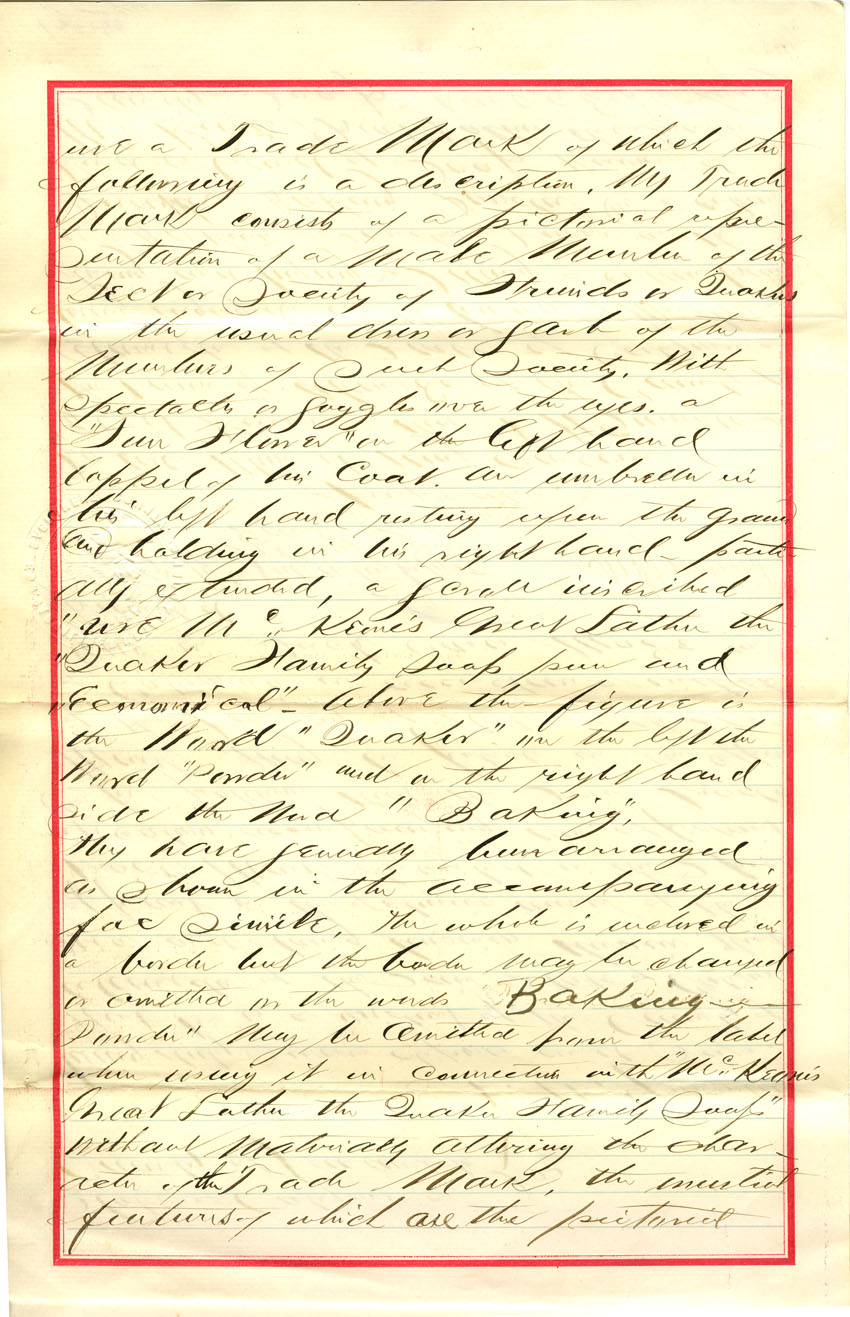 use a Trade Mark of which the
following is a description. My Trade
Mark consists of a pictorial repre-
sentation of a Male Member of the
Sect or Society of Friends or Quakers
in the usual dress or garb of the
Members of Such Society. With
spectacles or goggles over the eyes. a
"Sun Flower" on the left hand
lappel of his Coat. an umbrella in
his left hand resting upon the ground
and holding in his right hand – parti-
ally extended, a scroll inscribed
"use Mc Keone's Great Lather the
"Quaker Family Soap pure and
"Economical" – above the figure is
the Word "Quaker" on the left the
Word "Powder" and on the right hand
side the Word "Baking",
they have generally been arranged
as shown in the accompanying
fac Simile, the whole is enclosed in
a border but the border may be changed
or omitted or the words Baking
Powder" may be omitted from the label
when using it in connection with "Mc Keone's
Great Lather the Quaker Family Soap"
Without Materially altering the char-
acter of the Trade Mark, the essential
features of which are the pictorial